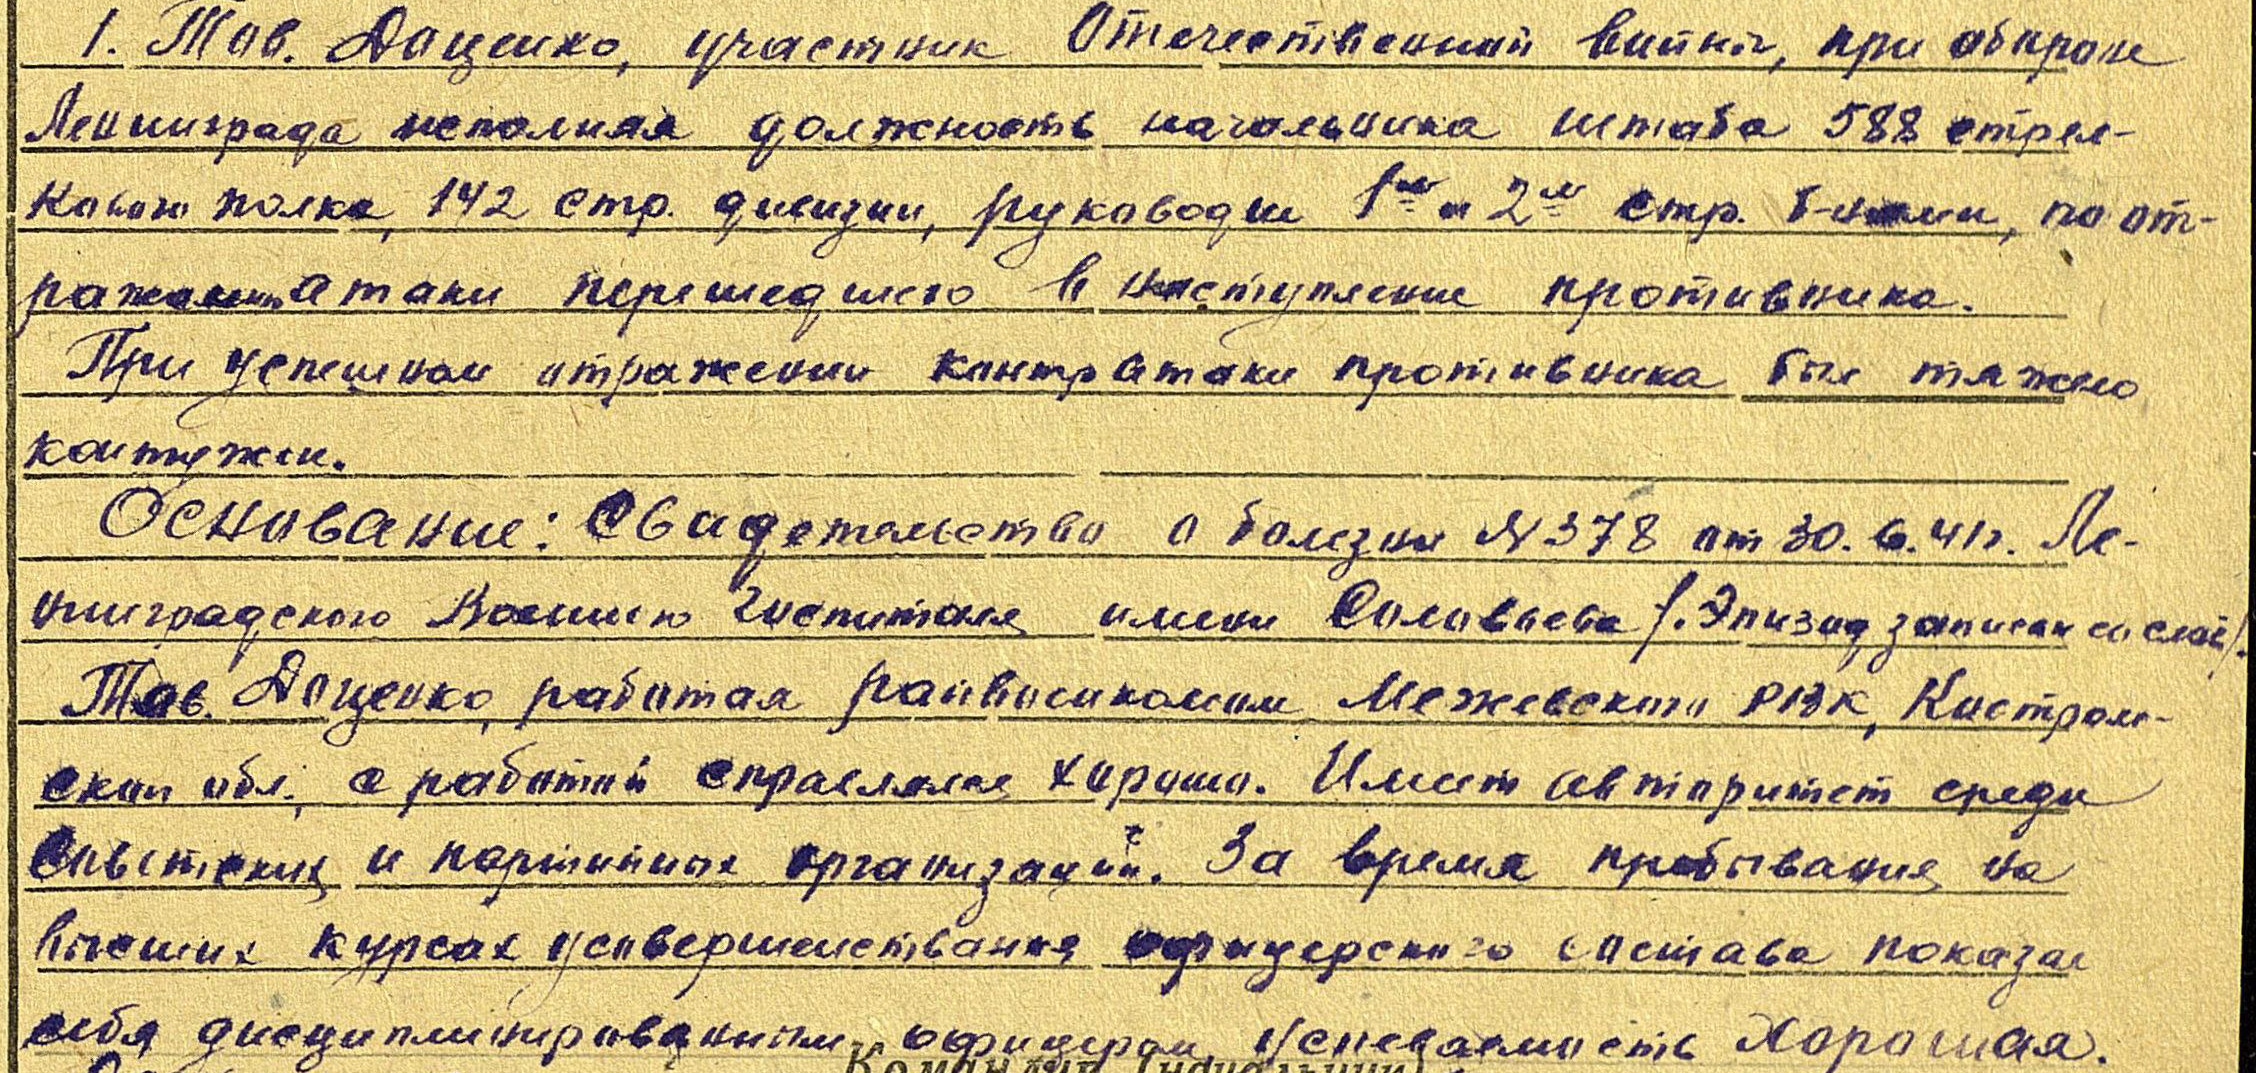 1. Тов. Доценко, участник Отечественной войны, при обороне
Ленинграда исполняя должность начальника штаба 588 стрел-
кового полка, 142 стр. дивизии, руководил 1м и 2м стр. б-нами, по от-
ражению атаки перешедшего в наступление противника.
При успешном отражении контратаки противника был тяжело
контужен.
Основание: Свидетельство о болезни N 378 от 30.6.41г. Ле-
нинградского Военного госпиталя имени Соловьева /. Эпизод записан со слов/.
Тов. Доценко, работая райвоенкомом Межевского РВК, Костром-
ской обл., с работой справлялся хорошо. Имеет авторитет среди
Советских и партийных организаций. За время пребывания на
высших курсах усовершенствования офицерского состава показал
себя дисциплинированным офицером успеваемость Хорошая.
Командир (начальник)